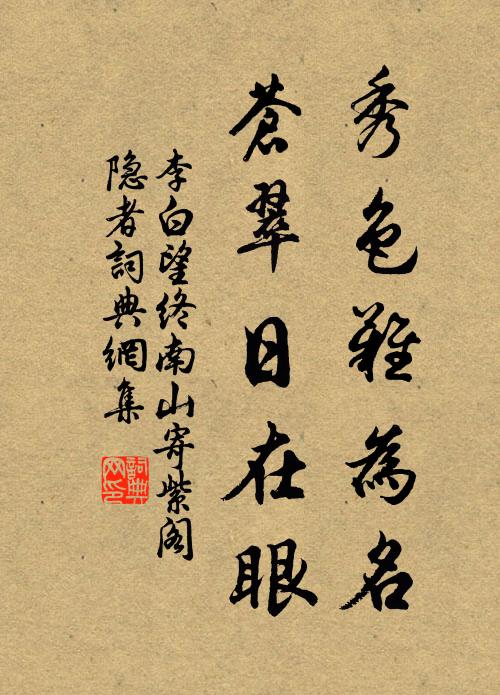 秀色難為名
蒼翠日在眼
李白望终南山寄紫阁
隐者詞典網集
詞典网印